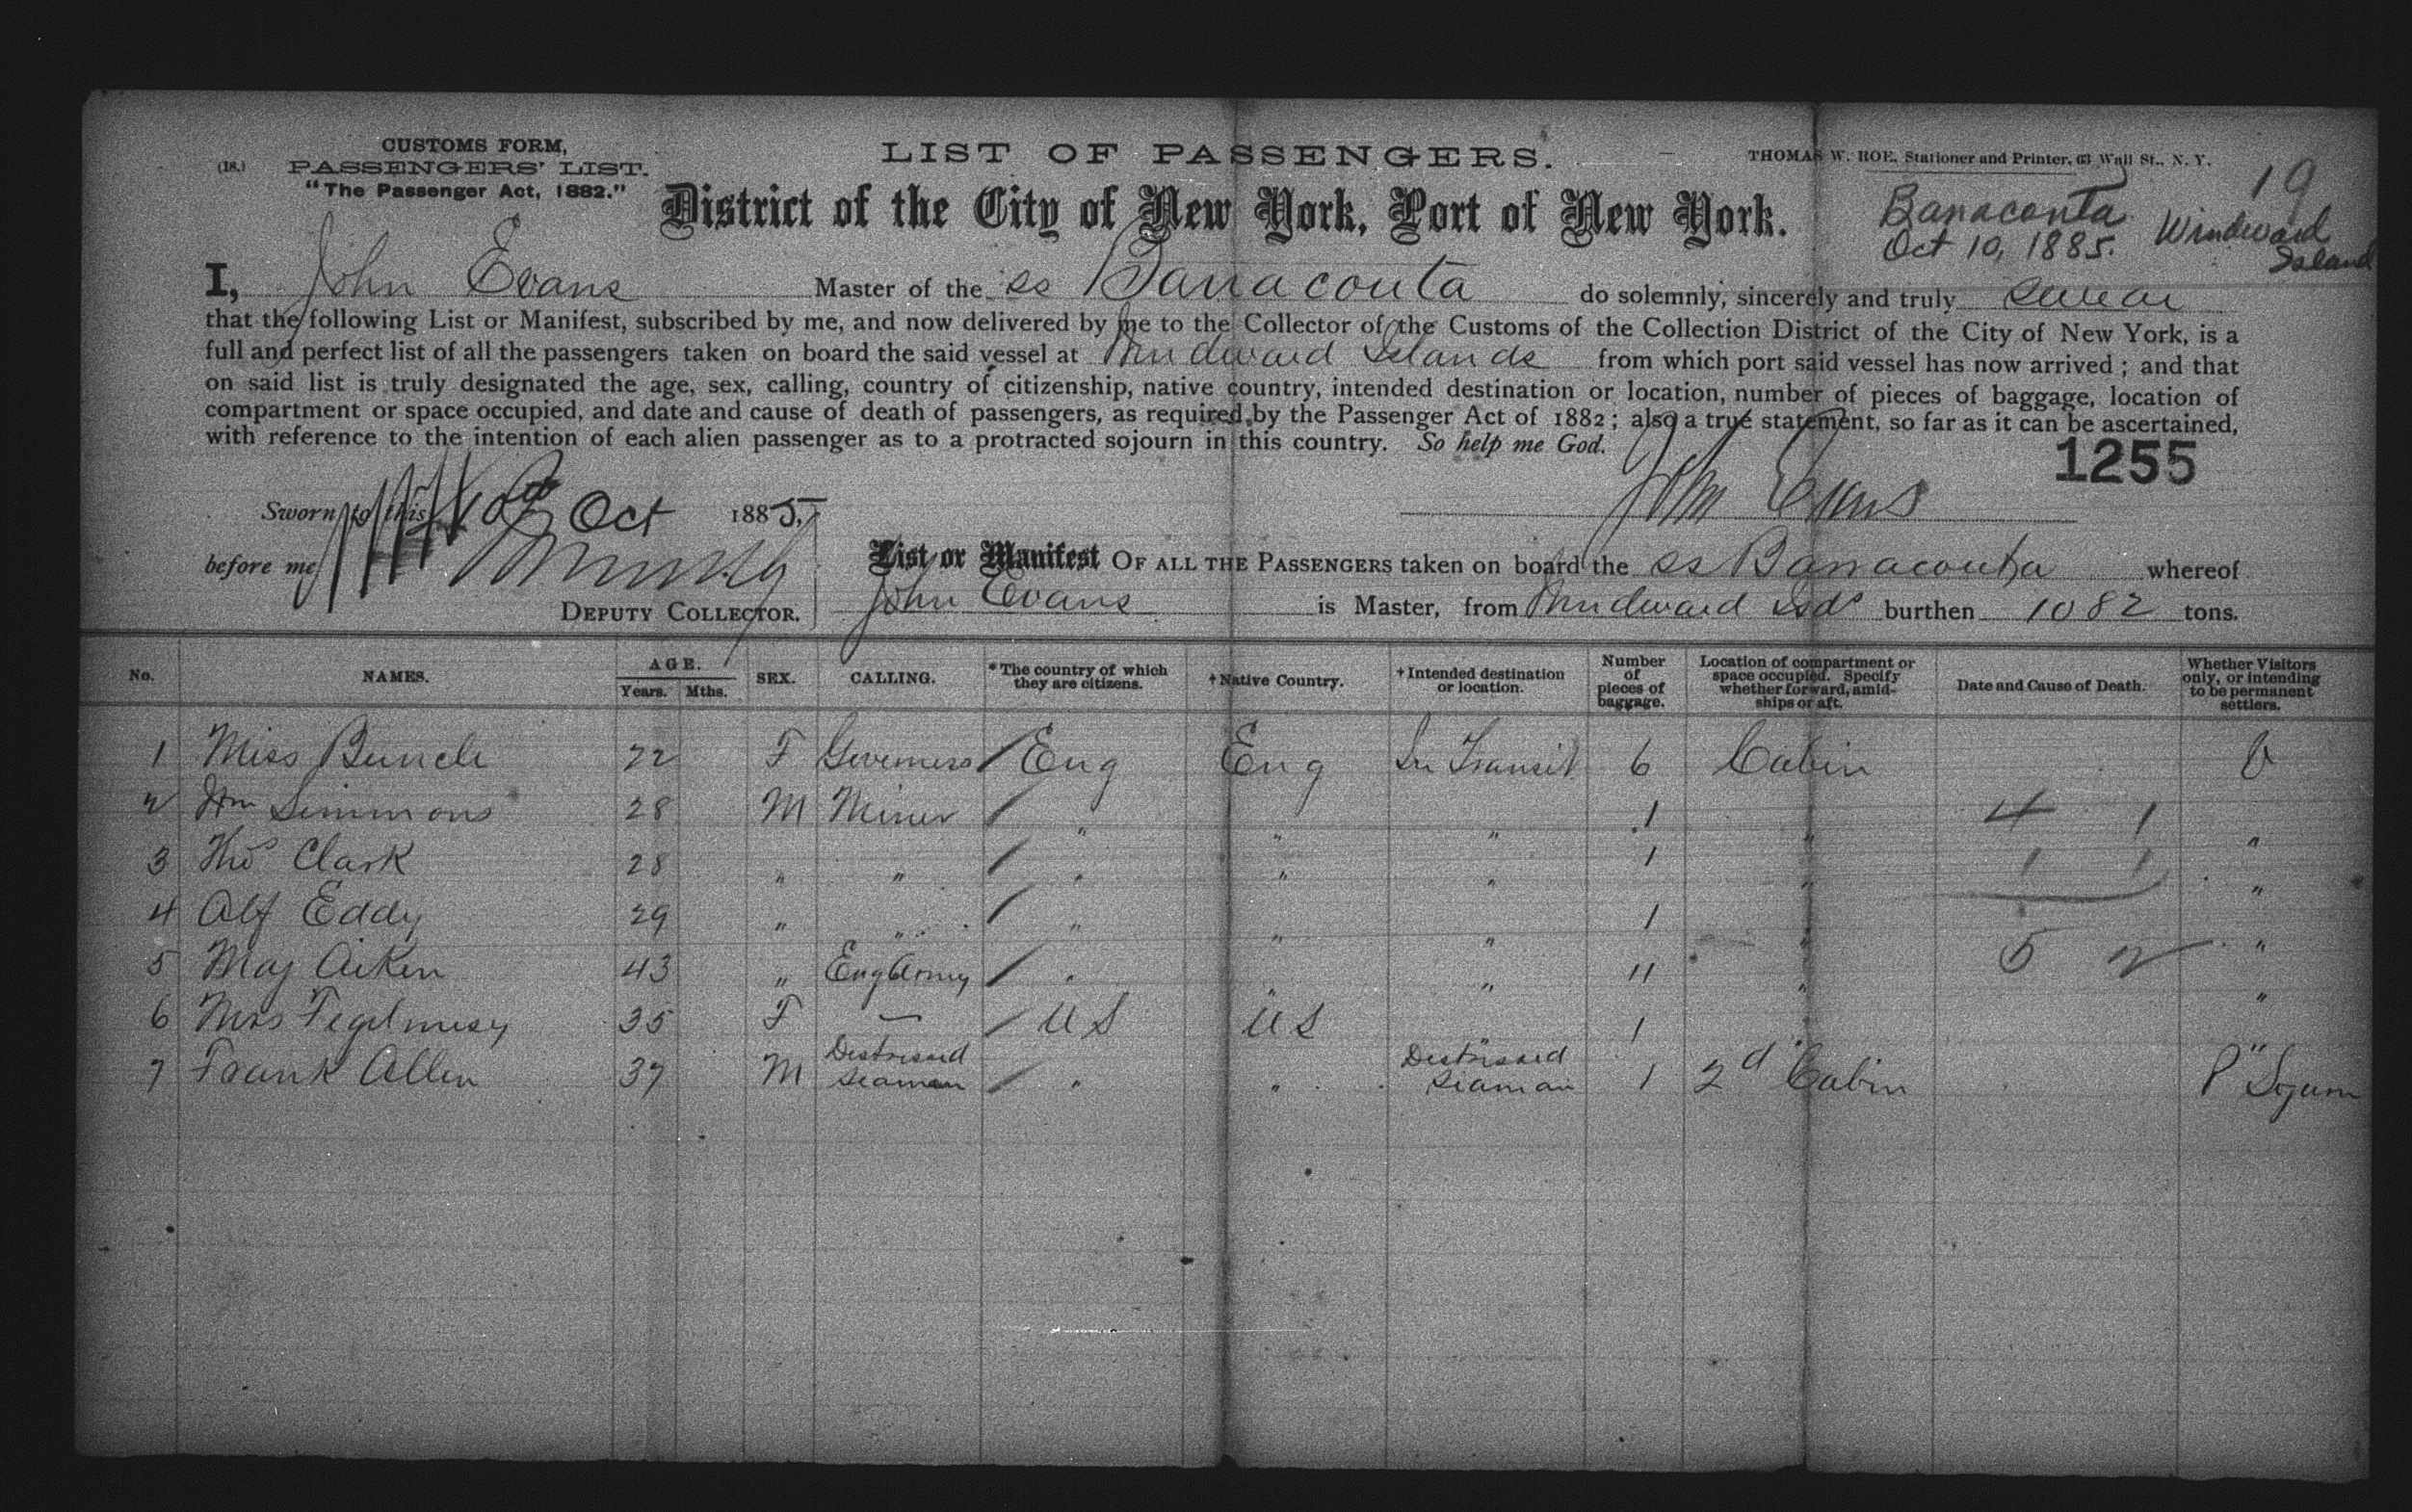 CUSTOMS FORM,
(18.) PASSENGERS' LIST.
"The Passenger Act, 1882."
LIST OF PASSENGERS.
THOMAS W. ROE, Stationer and Printer, 63 Wall St., N. Y.
District of the City of New York, Port of New York.
19
Barracouta Windward
Oct 10, 1885. Island
I, John Evans Master of the ss Barracouta do solemnly, sincerely and truly swear
that the following List or Manifest, subscribed by me, and now delivered by me to the Collector of the Customs of the Collection District of the City of New York, is a
full and perfect list of all the passengers taken on board the said vessel at Windward Islands from which port said vessel has now arrived; and that
on said list is truly designated the age, sex, calling, country of citizenship, native country, intended destination or location, number of pieces of baggage, location of
compartment or space occupied, and date and cause of death of passengers, as required by the Passenger Act of 1882; also a true statement, so far as it can be ascertained,
with reference to the intention of each alien passenger as to a protracted sojourn in this country. So help me God.
1255
Sworn to this 10 Oct 1885, John Evans
before me
DEPUTY COLLECTOR.
List or Manifest OF ALL THE PASSENGERS taken on board the ss Barracouta whereof
John Evans is Master, from Windward Isds burthen 1082 tons.
No. NAMES. AGE. Years. Mths. SEX. CALLING. *The country of which they are citizens. †Native Country. †Intended destination or location. Number of pieces of baggage. Location of compartment or space occupied. Specify whether forward, amidships or aft. Date and Cause of Death. Whether Visitors only, or intending to be permanent settlers.
1 Miss Buncle 22 F Governess / Eng Eng In Transit 6 Cabin V
2 Wm Simmons 28 M Miner / " " " 1 " 4 1 "
3 Thos Clark 28 " " / " " " 1 " 1 1 "
4 Alf Eddy 29 " " / " " " 1 " "
5 Maj Aiken 43 " Eng Army / " " " 11 " 5 2 "
6 Mrs 35 F — / U S U S " 1 " "
7 Frank Allen 37 M Distressed Seaman / " " Distressed Seaman 1 2d Cabin P